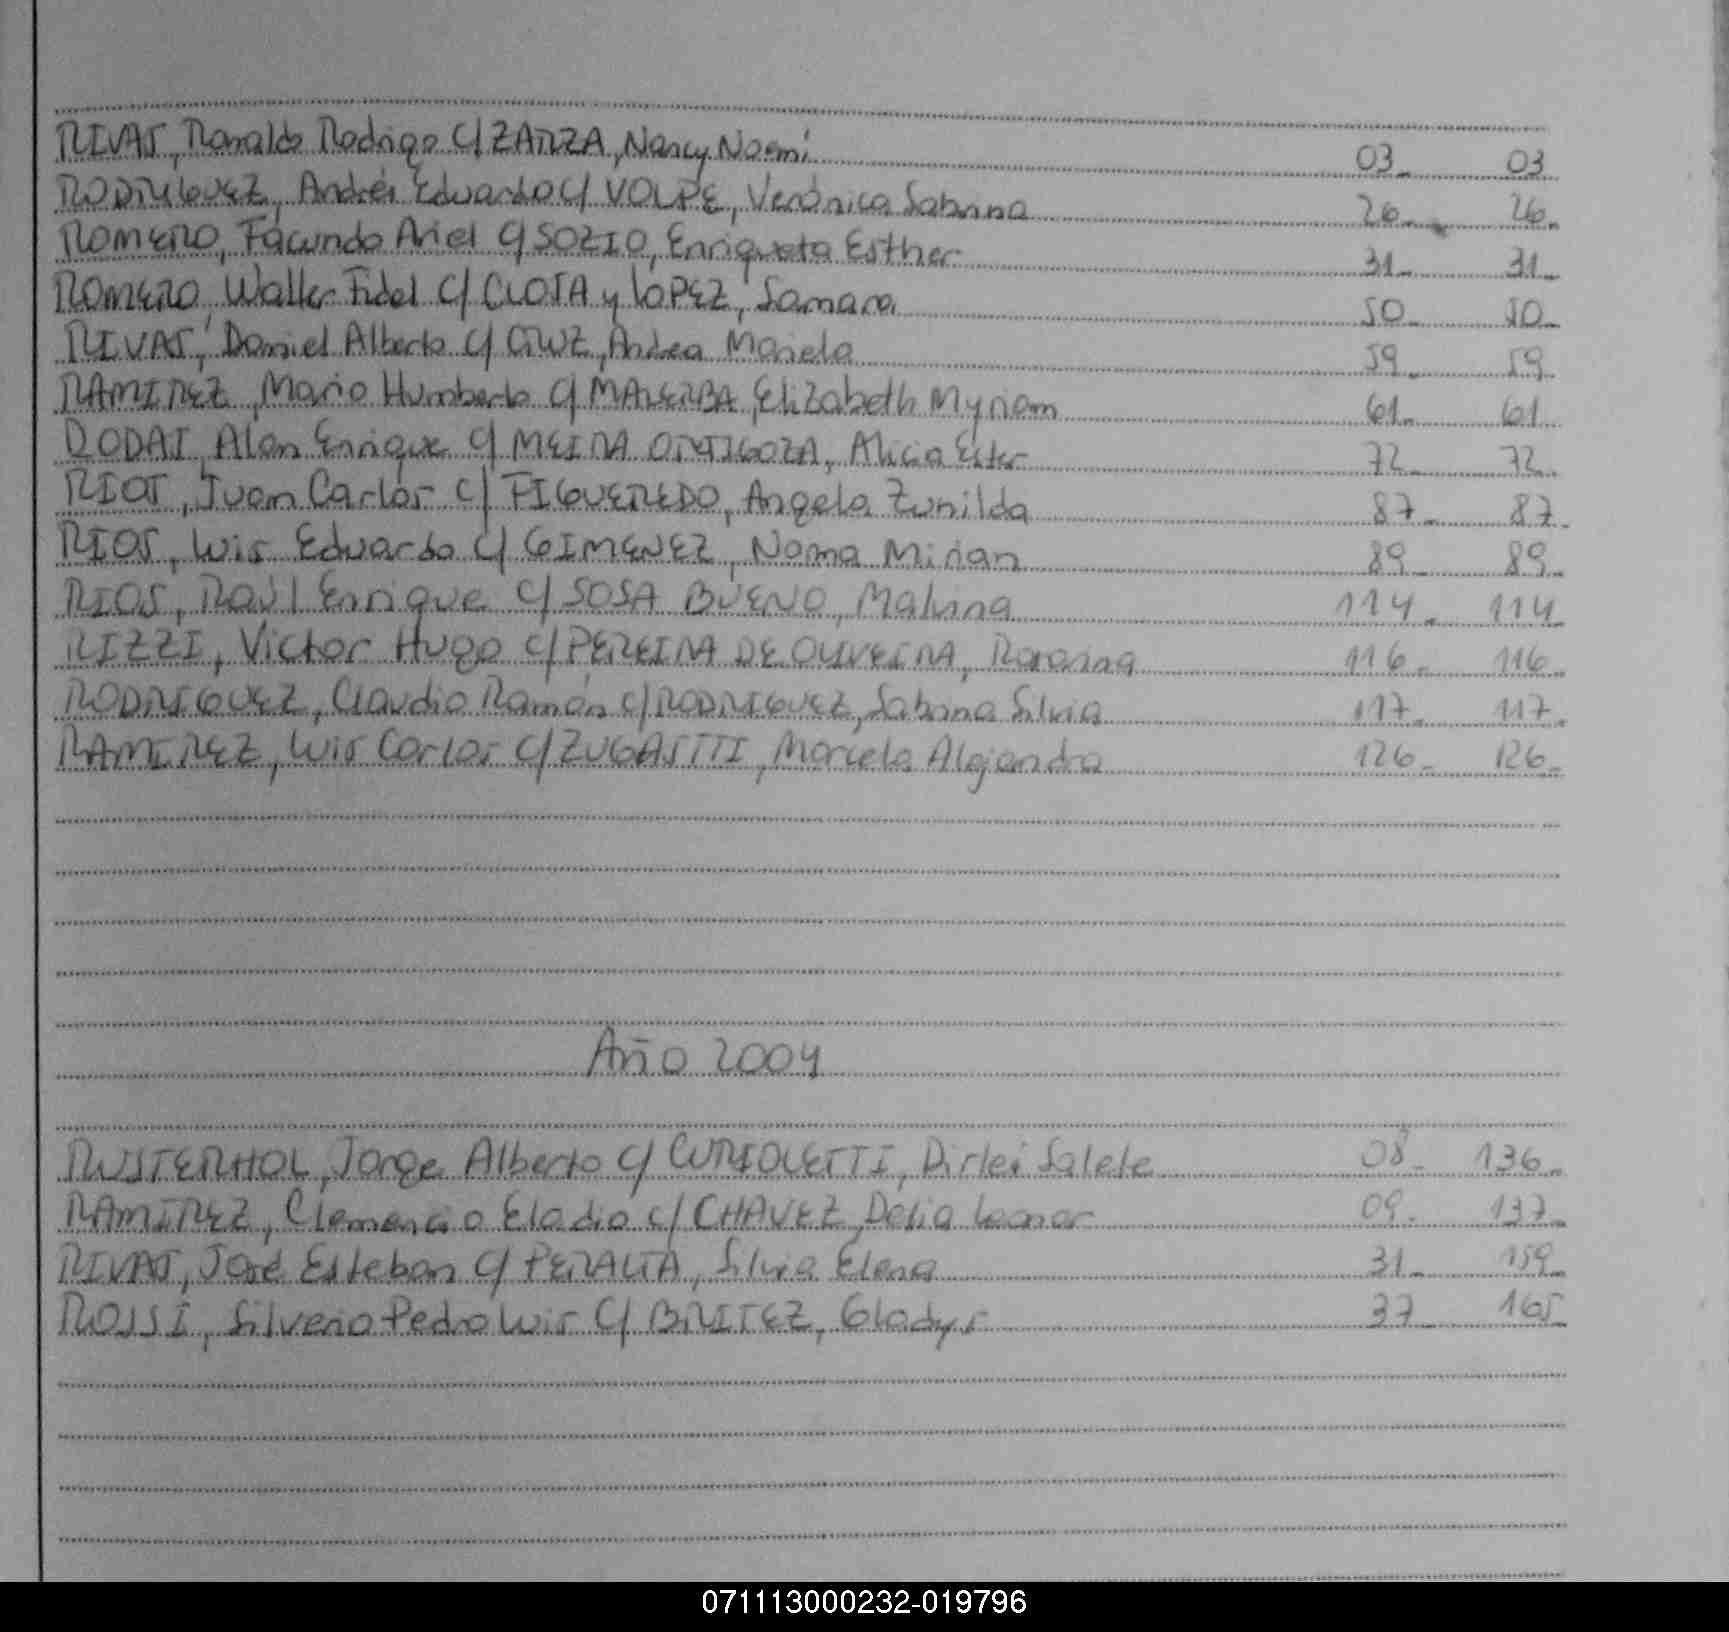 RIVAS, Ronaldo Rodrigo c/ ZARZA, Nancy Noemí 03_ 03
RODRIGUEZ, Andrés Eduardo c/ VOLPE, Verónica Sabrina 26_ 26_
ROMERO, Facundo Ariel c/ SOZIO, Enriqueta Esther 31_ 31_
ROMERO, Walter Fidel c/ CLOSA y LOPEZ, Samara 50_ 50_
RIVAS, Daniel Alberto c/ CRUZ, Andrea Mariela 59_ 59_
RAMIREZ, Mario Humberto c/ MALERBA, Elizabeth Myriam 61_ 61_
RODAS, Alan Enrique c/ MEIRA ORTIGOZA, Alicia Ester 72_ 72_
RIOS, Juan Carlos c/ FIGUEREDO, Angela Zunilda 87_ 87_
RIOS, Luis Eduardo c/ GIMENEZ, Norma Mirian 89_ 89_
RIOS, Raúl Enrique c/ SOSA BUENO, Malvina 114_ 114_
RIZZI, Victor Hugo c/ PEREIRA DE OLIVEIRA, 116_ 116_
RODRIGUEZ, Claudio Ramón c/ RODRIGUEZ, Sabrina Silvia 117_ 117_
RAMIREZ, Luis Carlos c/ ZUGASTTI, Marcela Alejandra 126_ 126_
Año 2004
RUSTERHOL, Jorge Alberto c/ CURIOLETTI, Dirlei Salete 08_ 136_
RAMIREZ, Clemencio Eladio c/ CHAVEZ, Delia Leonor 09_ 137_
RIVAS, José Esteban c/ PERALTA, Silvia Elena 31_ 159_
ROSSI, Silverio Pedro Luis c/ BRITEZ, Gladys 37_ 165_
071113000232-019796